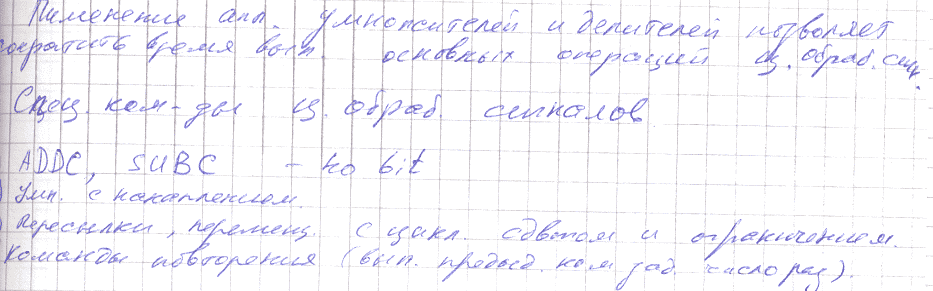 Применение апп. умножителей и делителей позволяет
сократить время вып. основных операций ц. обраб. сигн.
Спец. ком-ды ц. обраб. сигналов
ADDC, SUBC - 40 bit
Умн. с накоплением.
Пересылки, перемещ. с цикл. сдвигом и ограничением.
Команды повторения (вып. предыд. ком зад. число раз).